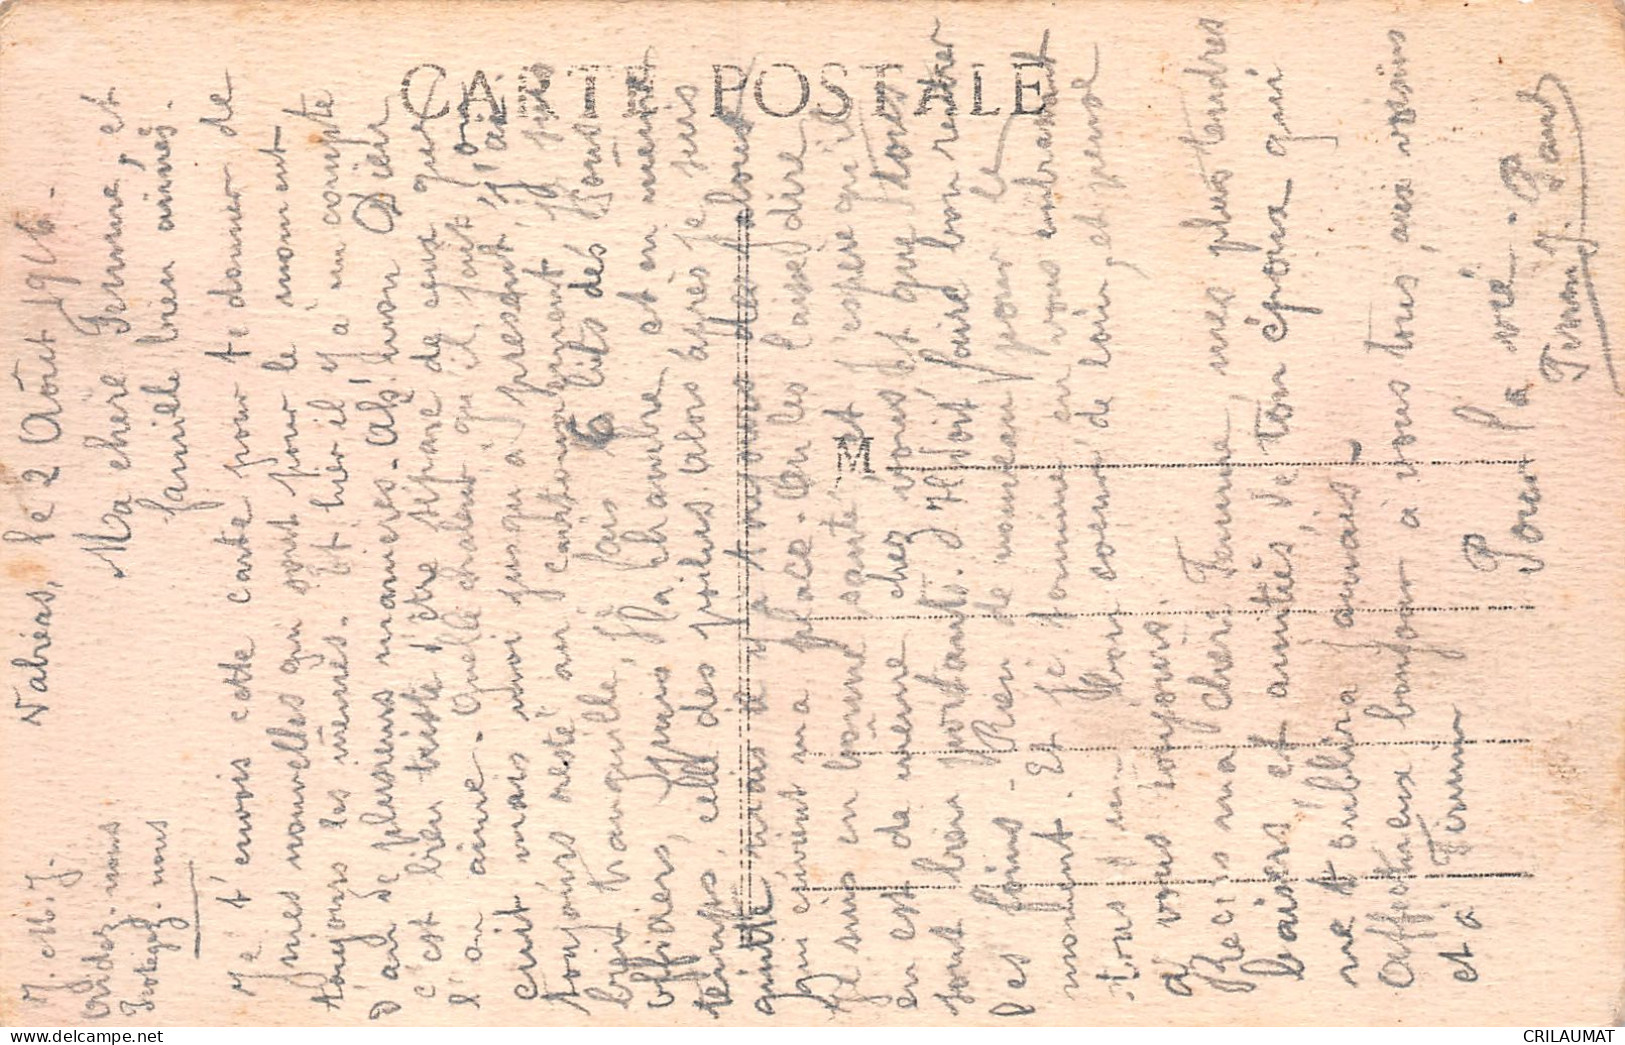 CARTE POSTALE
M
J. M. J.
Aidez-nous
Protégez-nous
Valréas, le 2 Août 1916.
Ma chère Femme, et
famille bien aimés.
Je t'envois cette carte pour te donner de
mes nouvelles qui sont pour le moment
toujours les mêmes. Et hier il y a un compte
d'an de plusieurs manières. Ah! mon Dieu
c'est bien triste d'être séparé de ceux que
l'on aime. Quelle chaleur qu'il fait, on
cuit mais moi jusqu'à présent, j'ai
toujours resté au cantonnement je suis
bien tranquille, je fais 6 lits des sous
officiers, puis ma chambre et en même
temps, celle des poilus alors après je suis
quitte, mais il y a toujours des jaloux
qui envient ma place. On les laisse dire
Je suis en bonne santé, et j'espère qu'il
en est de même chez vous et que tous
sont bien portants. Il doit faire bon rentrer
les foins - Rien de nouveau pour le
moment. Et je termine en vous embrassant
tous un bon coeur de loin, et pense
à vous toujours.
Reçois ma chère Femme mes plus tendres
baisers et amitiés, de ton époux qui
ne t'oubliera jamais.
Affectueux bonjour à vous tous, aux voisins
et à Firmin
Pour la vie - Paul
Firmin J.
CRILAUMAT